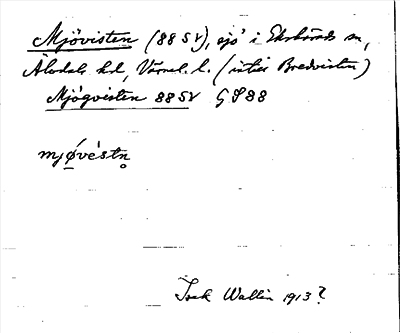 Mjövisten (88 SV), sjö i Ekshärads sn,
Älvdals hd, Värml. l. (intill Bredvisten)
Mjögvisten 88 SV GS 88
mjǿvéstn̥
Isak Wallin 1913?